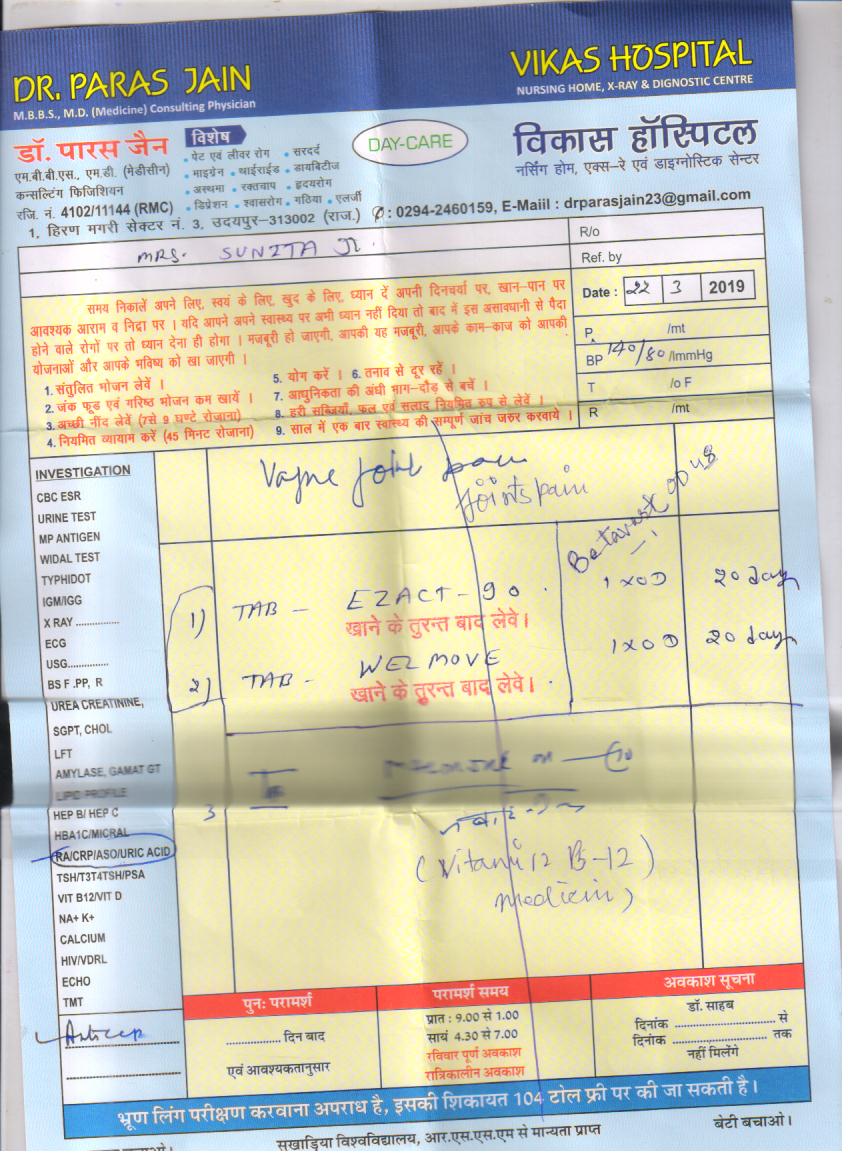 DR. PARAS JAIN
M.B.B.S., M.D. (Medicine) Consulting Physician
VIKAS HOSPITAL
NURSING HOME, X-RAY & DIGNOSTIC CENTRE
डॉ. पारस जैन
एम.बी.बी.एस., एम.डी. (मेडीसीन)
कन्सल्टिंग फिजिशियन
रजि. नं. 4102/11144 (RMC)
विशेष
• पेट एवं लीवर रोग • सरदर्द
• माइग्रेन • थाईराईड • डायबिटीज
• अस्थमा • रक्तचाप • हृदयरोग
• डिप्रेशन • श्वासरोग • गठिया • एलर्जी
DAY-CARE
विकास हॉस्पिटल
नर्सिंग होम, एक्स-रे एवं डाइग्नोस्टिक सेन्टर
1. हिरण मगरी सेक्टर नं. 3, उदयपुर-313002 (राज.) : 0294-2460159, E-Maiil : drparasjain23@gmail.com
MRS. SUNITA Ji
R/o
Ref. by
Date : 22 3 2019
P. /mt
BP 140/80 /ImmHg
T /o F
R /mt
समय निकालें अपने लिए, स्वयं के लिए, खुद के लिए, ध्यान दें अपनी दिनचर्या पर, खान-पान पर
आवश्यक आराम व निद्रा पर । यदि आपने अपने स्वास्थ्य पर अभी ध्यान नहीं दिया तो बाद में इस असावधानी से पैदा
होने वाले रोगों पर तो ध्यान देना ही होगा । मजबूरी हो जाएगी, आपकी यह मजबूरी, आपके काम-काज को आपकी
योजनाओं और आपके भविष्य को खा जाएगी ।
1. संतुलित भोजन लेवें ।
2. जंक फूड एवं गरिष्ठ भोजन कम खायें ।
3. अच्छी नींद लेवें (7से 9 घण्टे रोजाना)
4. नियमित व्यायाम करें (45 मिनट रोजाना)
5. योग करें । 6. तनाव से दूर रहें ।
7. आधुनिकता की अंधी भाग-दौड़ से बचें ।
8. हरी सब्जियाँ, फल एवं सलाद नियमित रुप से लेवें ।
9. साल में एक बार स्वास्थ्य की सम्पूर्ण जांच जरुर करवाये ।
INVESTIGATION
CBC ESR
URINE TEST
MP ANTIGEN
WIDAL TEST
TYPHIDOT
IGM/IGG
X RAY ..............
ECG
USG..............
BS F .PP, R
UREA CREATININE,
SGPT, CHOL
LFT
AMYLASE, GAMAT GT
LIPID PROFILE
HEP B/ HEP C
HBA1C/MICRAL
RA/CRP/ASO/URIC ACID
TSH/T3T4TSH/PSA
VIT B12/VIT D
NA+ K+
CALCIUM
HIV/VDRL
ECHO
TMT
Anti ccp
Vague joint pain
Joints pain
1) TAB - EZACT-90 1 x OD 20 day
खाने के तुरन्त बाद लेवे।
2) TAB - WELMOVE 1 x OD 20 day
खाने के तुरन्त बाद लेवे।
3
(Vitamin B-12)
medicin)
पुनः परामर्श
............... दिन बाद
एवं आवश्यकतानुसार
परामर्श समय
प्रात : 9.00 से 1.00
सायं 4.30 से 7.00
रविवार पूर्ण अवकाश
रात्रिकालीन अवकाश
अवकाश सूचना
डॉ. साहब
दिनांक .................... से
दिनांक .................... तक
नहीं मिलेंगे
भ्रूण लिंग परीक्षण करवाना अपराध है, इसकी शिकायत 104 टोल फ्री पर की जा सकती है।
सुखाड़िया विश्वविद्यालय, आर.एस.एस.एम से मान्यता प्राप्त
बेटी बचाओ।